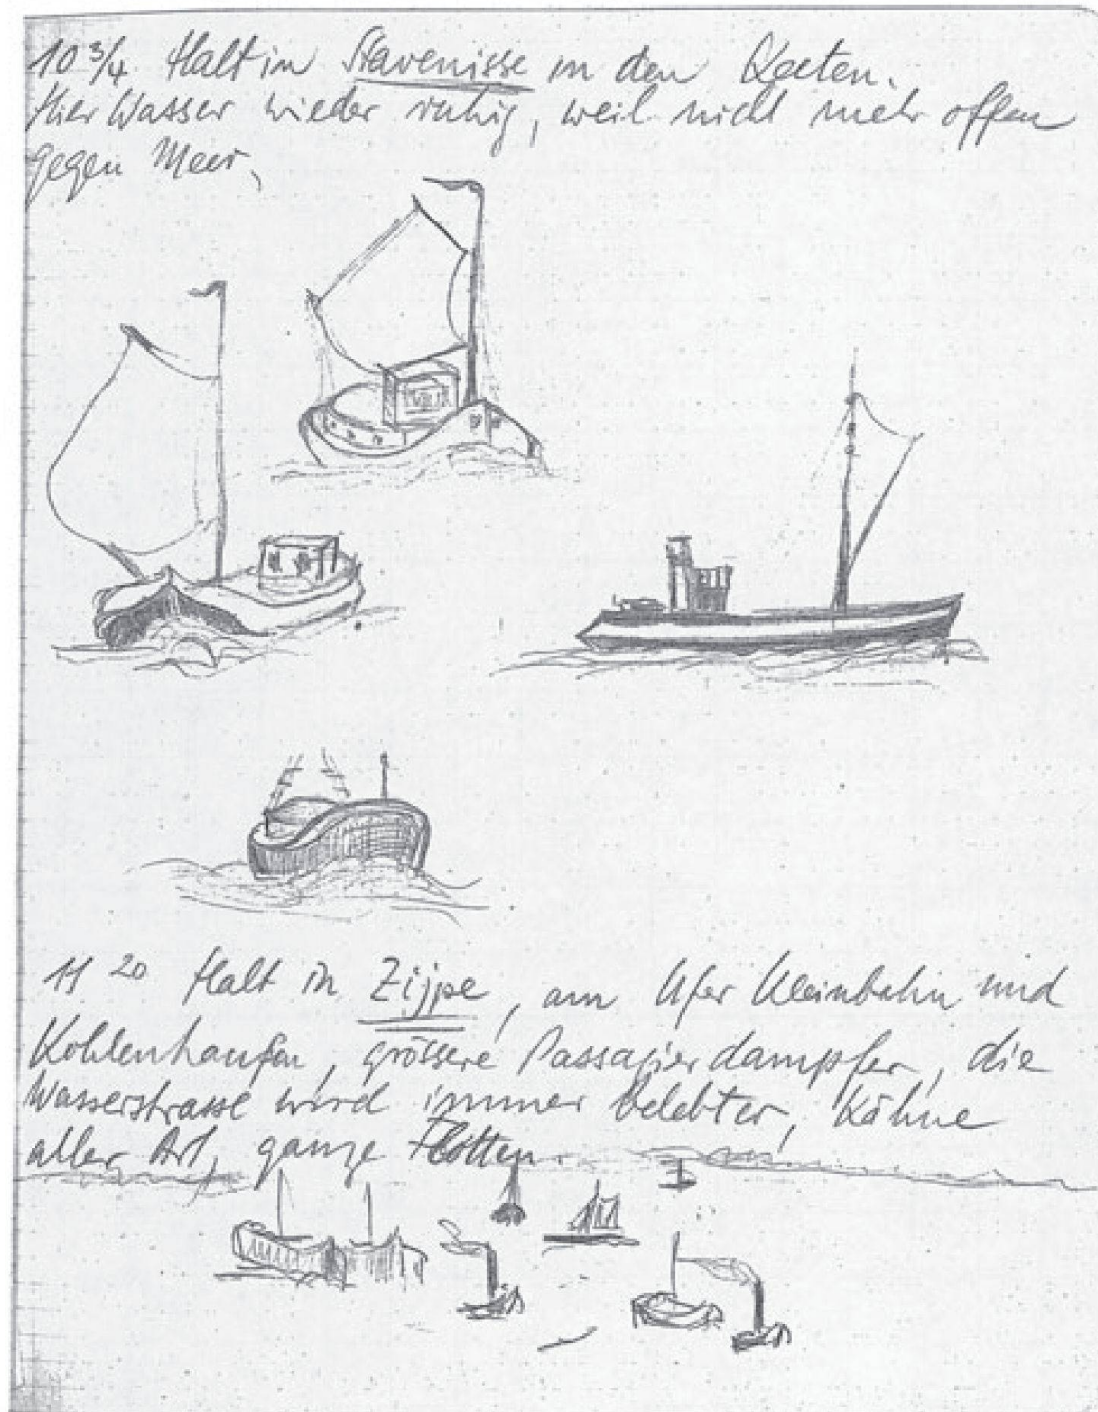 10 3/4 Halt in Stavenisse in den Keeten.
Hier Wasser wieder ruhig, weil nicht mehr offen
gegen Meer,
11 20 Halt in Zijpe, am Ufer Kleinbahn und
Kohlenhaufen, grössere Passagierdampfer, die
Wasserstrasse wird immer belebter, Kähne
aller Art, ganze Flotten.